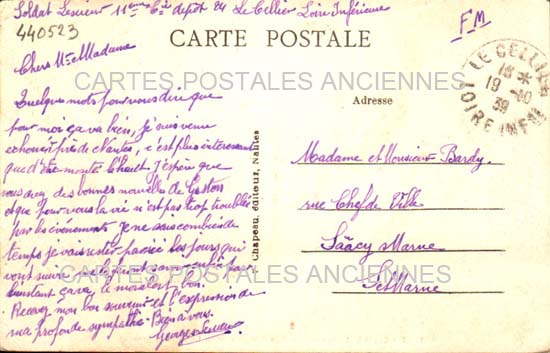 Soldat Lesueur 11eme Cie depot 24 Le Cellier Loire Inférieure
440523
F.M
CARTE POSTALE
Chers Mr et Madame
CARTES POSTALES ANCIENNES
LE CELLIER
18 *
19 -10
39
LOIRE INFRE
Quelques mots pour vous dire que
pour moi ça va bien, je suis venu
échouer près de Nantes, c'est plus intéressant
que d'être monté. J'espère que
vous avez des bonnes nouvelles de Gaston
et que pour vous la vie n'est pas trop troublée
par les événements. Je ne sais combien de
temps je vais rester les jours qui
vont suivre
l'instant ça va, le moral est bon.
Recevez mon bon souvenir et l'expression de
ma profonde sympathie. Bien à vous.
Georges Lesueur
Chapeau, éditeurs, Nantes
Adresse
Madame et Monsieur Bardy.
rue Chef de Ville
Saâcy Marne
CARTES POSTALES ANCIENNES
Set Marne